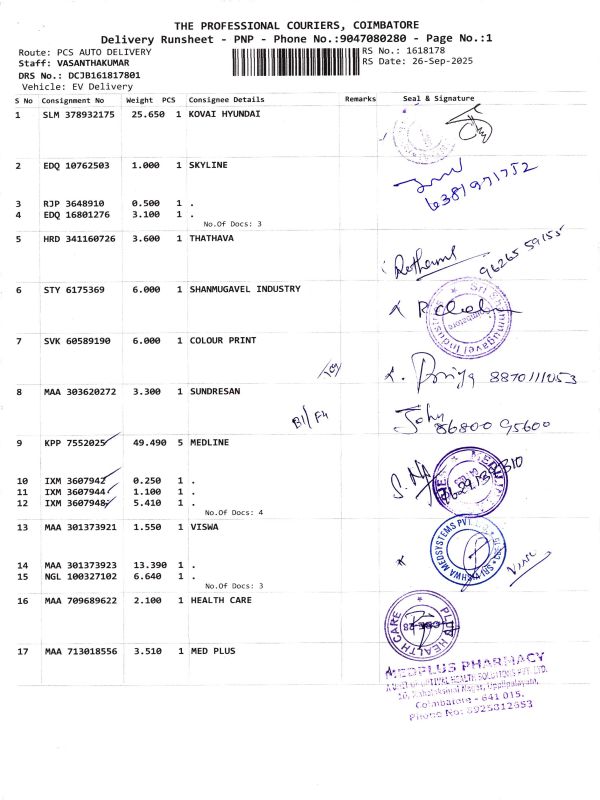 THE PROFESSIONAL COURIERS, COIMBATORE
Delivery Runsheet - PNP - Phone No.:9047080280 - Page No.:1
Route: PCS AUTO DELIVERY RS No.: 1618178
Staff: VASANTHAKUMAR RS Date: 26-Sep-2025
DRS No.: DCJB161817801
Vehicle: EV Delivery
S No Consignment No Weight PCS Consignee Details Remarks Seal & Signature
1 SLM 378932175 25.650 1 KOVAI HYUNDAI
2 EDQ 10762503 1.000 1 SKYLINE
6381971752
3 RJP 3648910 0.500 1 .
4 EDQ 16801276 3.100 1 .
No.Of Docs: 3
5 HRD 341160726 3.600 1 THATHAVA
96265 59155
6 STY 6175369 6.000 1 SHANMUGAVEL INDUSTRY
Sri Shanmugavel Industries
7 SVK 60589190 6.000 1 COLOUR PRINT
Priya 8870111053
8 MAA 303620272 3.300 1 SUNDRESAN
B1/F4 John 86800 95600
9 KPP 7552025 49.490 5 MEDLINE
10 IXM 3607942 0.250 1 .
11 IXM 3607944 1.100 1 .
12 IXM 3607948 5.410 1 .
No.Of Docs: 4
13 MAA 301373921 1.550 1 VISWA
14 MAA 301373923 13.390 1 .
15 NGL 100327102 6.640 1 .
No.Of Docs: 3
16 MAA 709689622 2.100 1 HEALTH CARE
HEALTH CARE
17 MAA 713018556 3.510 1 MED PLUS
MEDPLUS PHARMACY
Coimbatore - 641 015.
Phone No: 8925812653